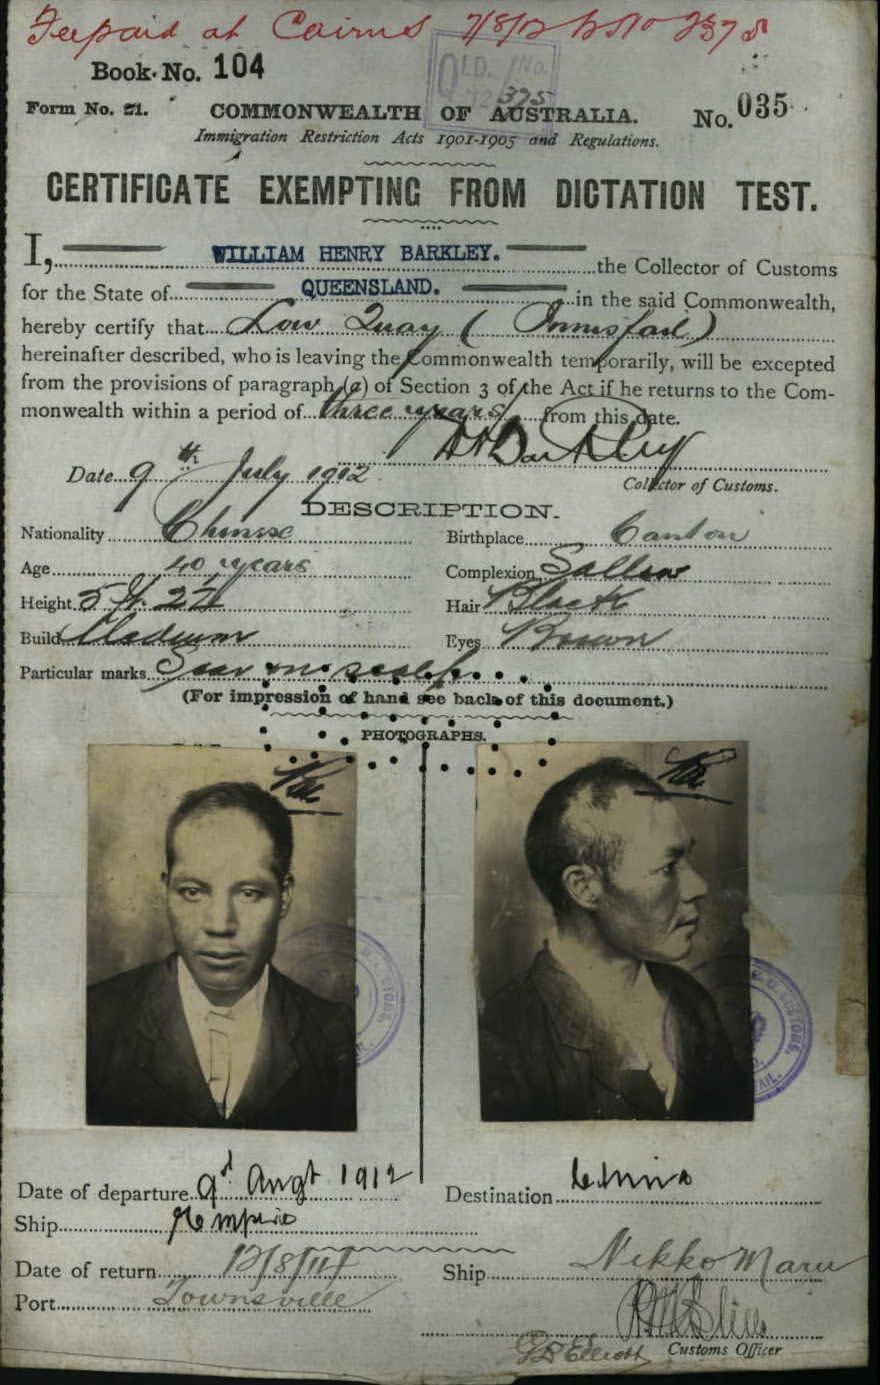 Feepaid at Cairns 7/8/12
Book No. 104
QLD. No.
375
Form No. 21. COMMONWEALTH OF AUSTRALIA. No. 035
Immigration Restriction Acts 1901-1905 and Regulations.
CERTIFICATE EXEMPTING FROM DICTATION TEST.
I, WILLIAM HENRY BARKLEY. the Collector of Customs
for the State of QUEENSLAND. in the said Commonwealth,
hereby certify that Low Quay (Innisfail)
hereinafter described, who is leaving the Commonwealth temporarily, will be excepted
from the provisions of paragraph (a) of Section 3 of the Act if he returns to the Com-
monwealth within a period of three years from this date.
WHBarkley
Date 9th July 1912 Collector of Customs.
DESCRIPTION.
Nationality Chinese Birthplace Canton
Age 40 years Complexion Sallow
Height 5 ft. 2½ Hair Black
Build Medium Eyes Brown
Particular marks Scar on scalp.
(For impression of hand see back of this document.)
PHOTOGRAPHS.
Date of departure 9d Augt 1912 Destination China
Ship Empire
Date of return 12/8/14 Ship Nikko Maru
Port Townsville
Customs Officer